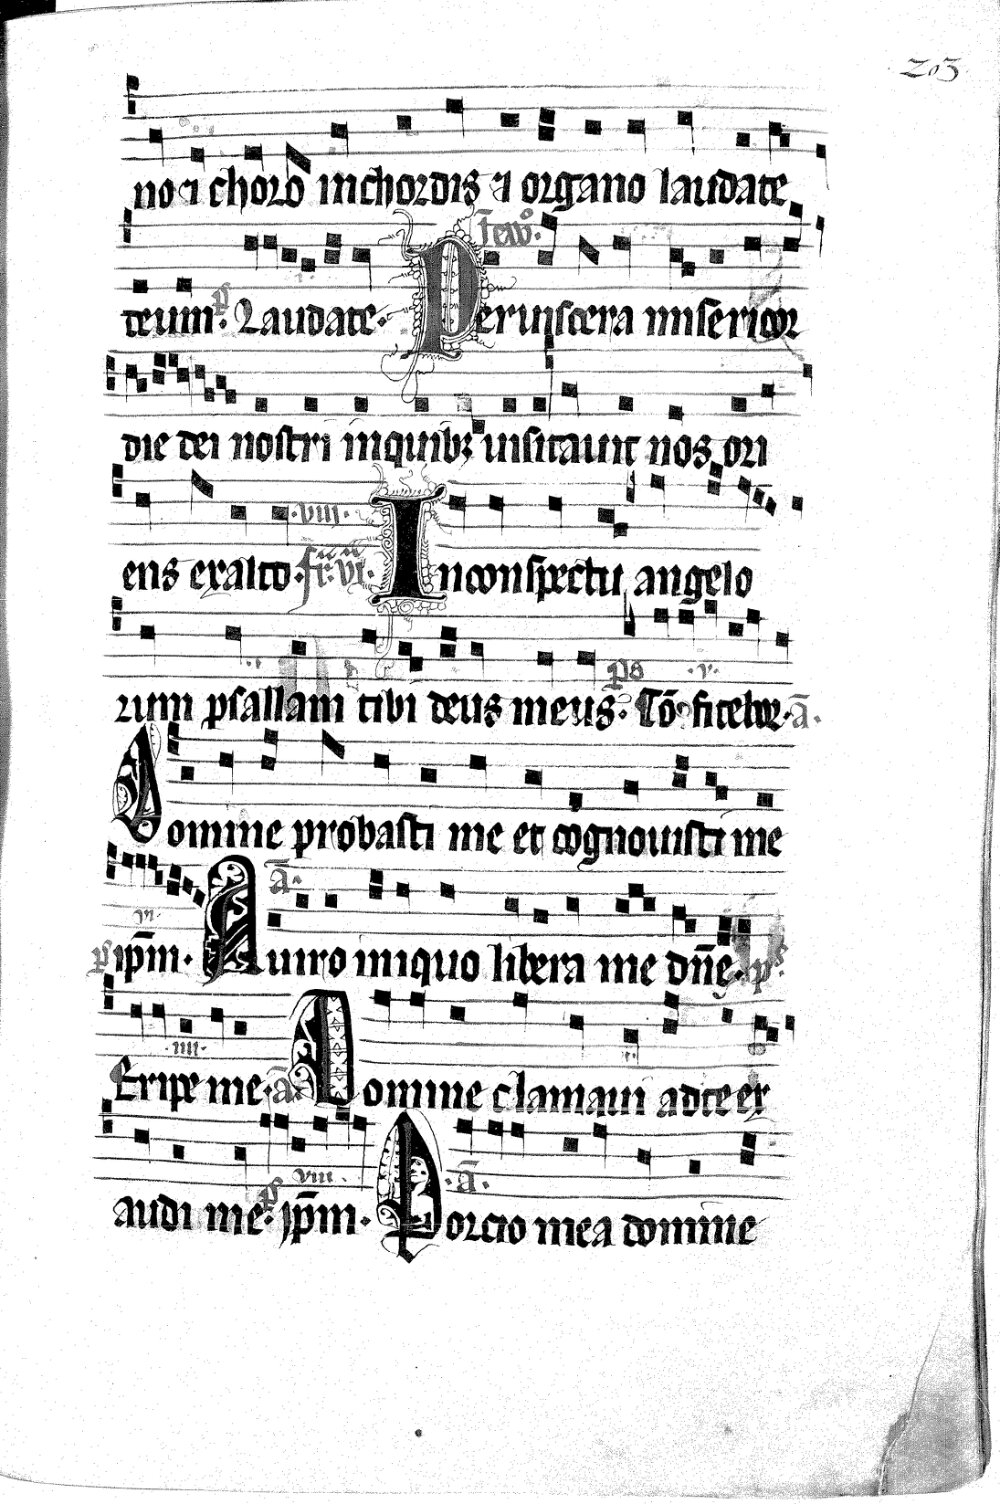 203
no ⁊ choro in chordis ⁊ organo laudate
deum. ps Laudate. In evangelio. Per viscera misericor
die dei nostri in quibꝫ visitauit nos ori
ens ex alto. viii. fr. vi. In conspectu angelo
rum psallam tibi deus meus. ps Cōfitebor. v. ā.
Domine probasti me et cognouisti me
ps ip̄m. vii. ā. A uiro iniquo libera me dn̄e. ps
Eripe me. iiii. ā. Domine clamaui ad te ex
audi me. ps ip̄m. viii. ā. Porcio mea domine